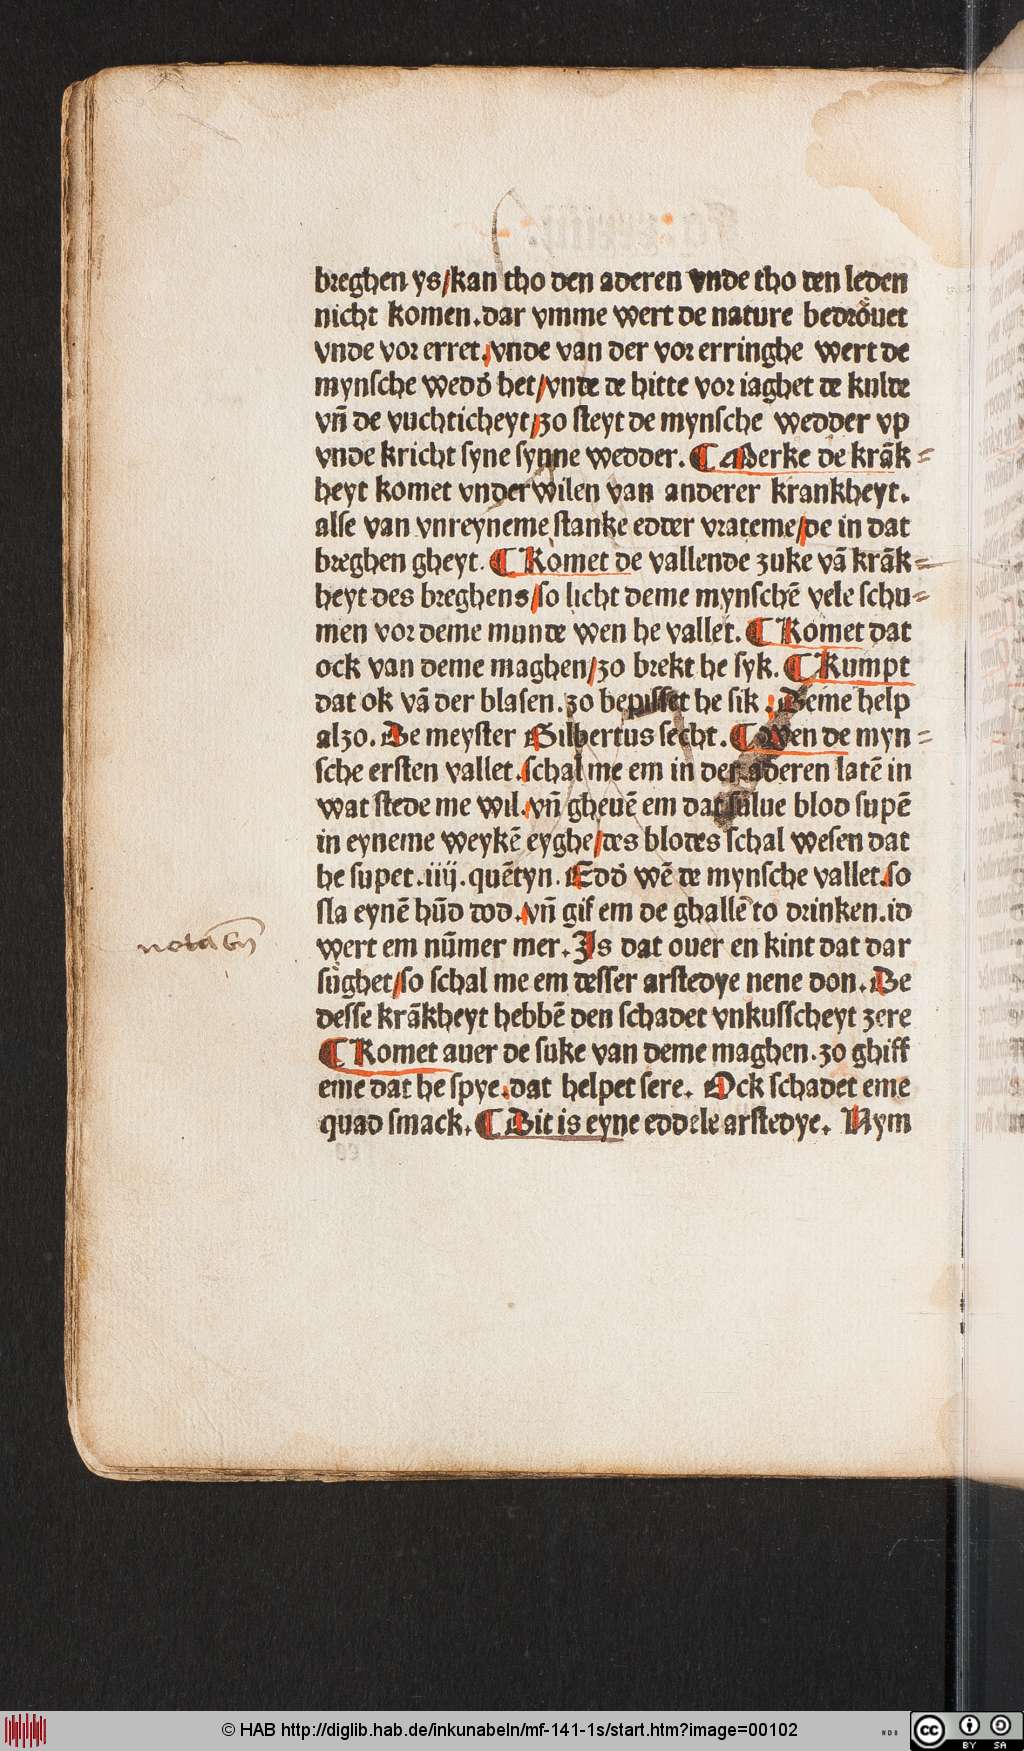 breghen ys/kan tho den aderen vnde tho den leden
nicht komen.dar vmme wert de nature bedröuet
vnde vor erret.vnde van der vor erringhe wert de
mynsche wedd' het/vnde de hitte vor iaghet de kulde
vn̄ de vuchticheyt/zo steyt de mynsche wedder vp
vnde kricht syne synne wedder. ¶ Merke de krāk=
heyt komet vnderwilen van anderer krankheyt.
alse van vnreyneme stanke edder vrateme/de in dat
breghen gheyt. ¶ Komet de vallende zuke vā krāk=
heyt des breghens/so licht deme mynschē vele schu=
men vor deme munde wen he vallet. ¶ Komet dat
ock van deme maghen/zo brekt he syk. ¶ Kumpt
dat ok vā der blasen.zo bepisset he sik. Deme help
alzo. De meyster Gilbertus secht. ¶ Wen de myn=
sche ersten vallet.schal me em in der aderen latē in
wat stede me wil.vn̄ gheuē em dat sulue blod supē
in eyneme weykē eyghe/des blodes schal wesen dat
he supet.iiij.quētyn. Edd' wē de mynsche vallet.so
sla eynē hūd dod.vn̄ gif em de ghallē to drinken.id
wert em nūmer mer. Is dat ouer en kint dat dar
sughet/so schal me em desser arstedye nene don. De
desse krākheyt hebbē den schadet vnkusscheyt zere
¶ Komet auer de suke van deme maghen.zo ghiff
eme dat he spye.dat helpet sere. Ock schadet eme
quad smack. ¶ Dit is eyne eddele arstedye. Nym
© HAB http://diglib.hab.de/inkunabeln/mf-141-1s/start.htm?image=00102
WDB
cc BY SA